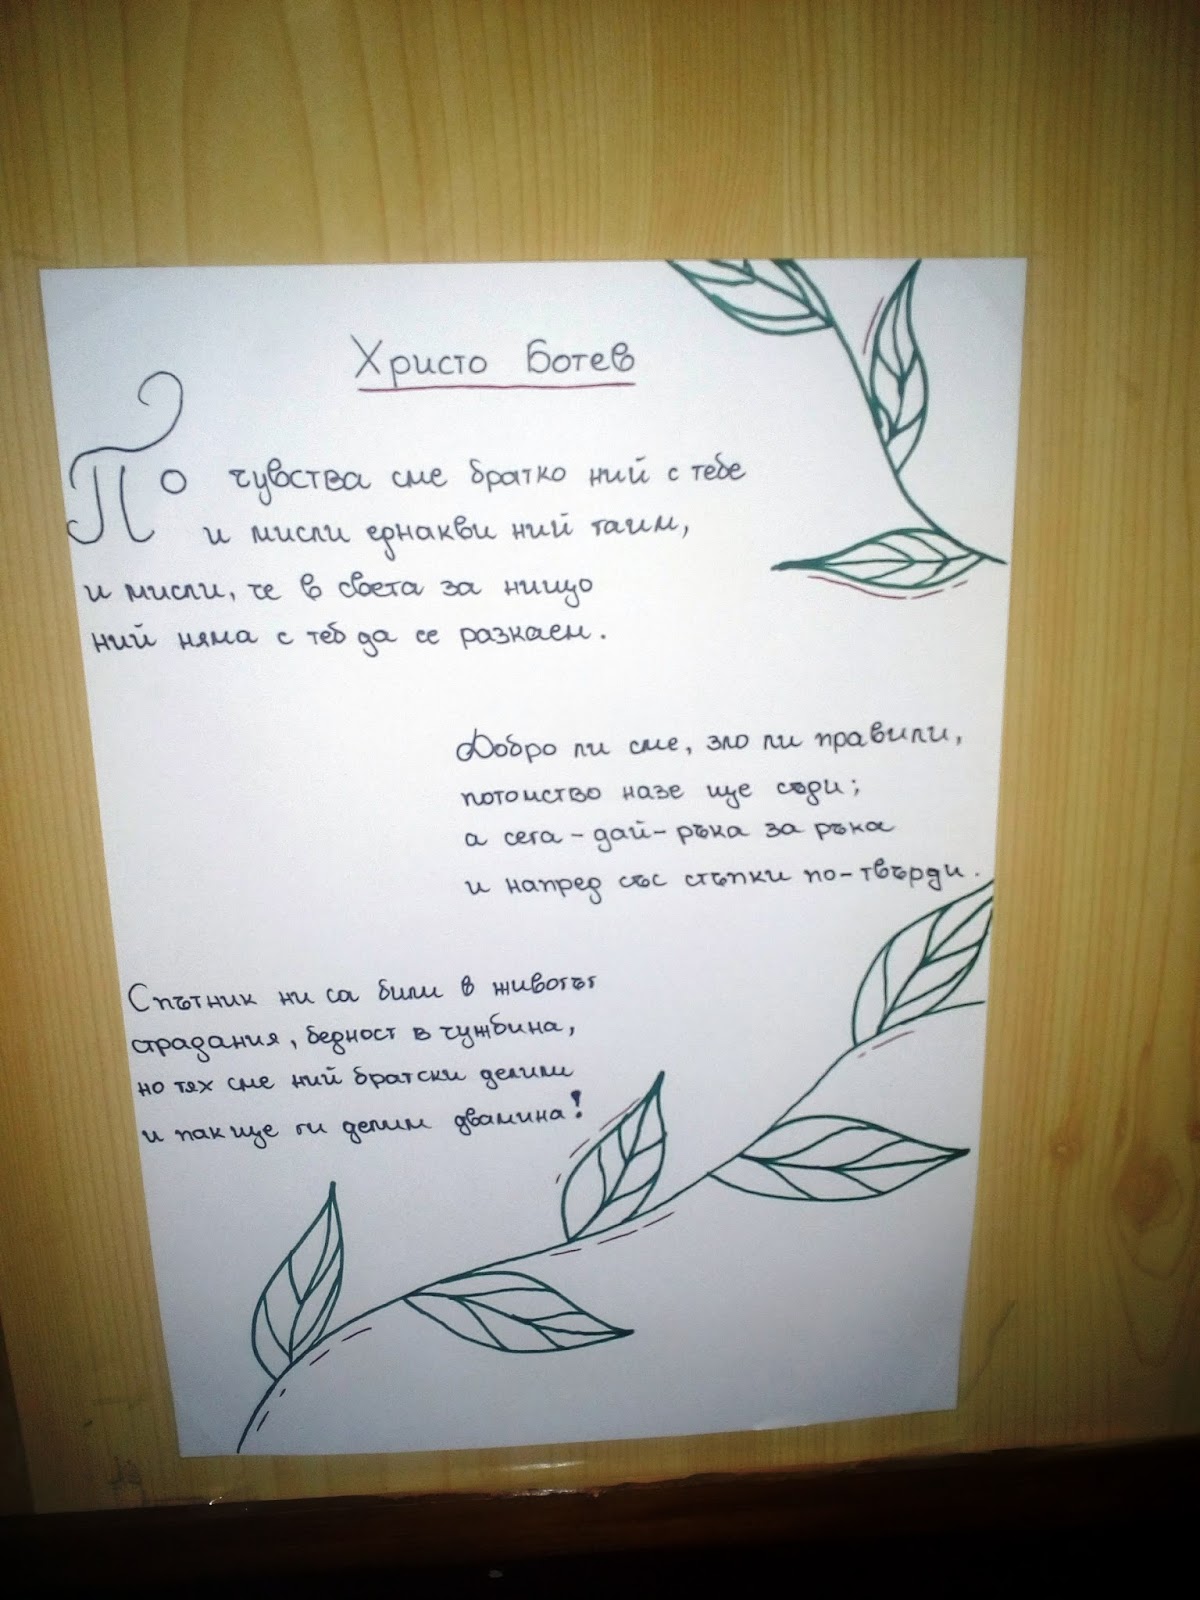 Христо Ботев
По чувства сме братко ний с тебе
и мисли еднакви ний таим,
и мисли, че в света за нищо
ний няма с теб да се разкаем.
Добро ли сме, зло ли правили,
потомство назе ще съди;
а сега - дай - ръка за ръка
и напред със стъпки по-твърди.
Спътник ни са били в животът
страдания, бедност в чужбина,
но тях сме ний братски делили
и пак ще ги делим двамина!